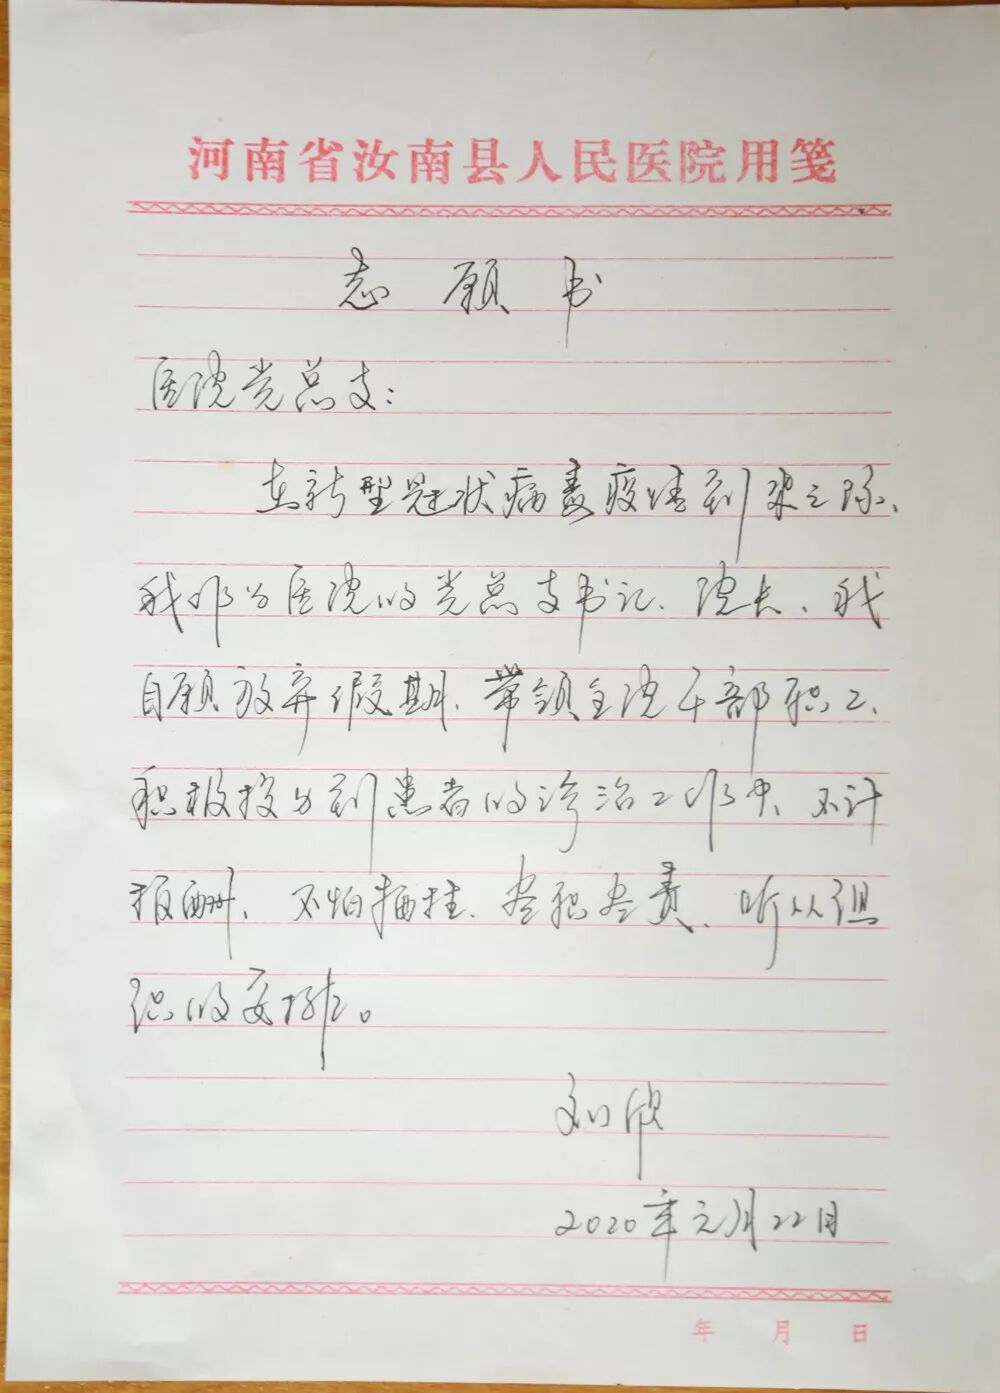 河南省汝南县人民医院用笺
志愿书
医院党总支：
在新型冠状病毒疫情到来之际、
我作为医院的党总支书记、院长、我
自愿放弃假期、带领全院干部职工、
积极投身到患者的诊治工作中、不计
报酬、不怕牺牲、尽职尽责、听从组
织的安排。
刘欣
2020年元月22日
年 月 日